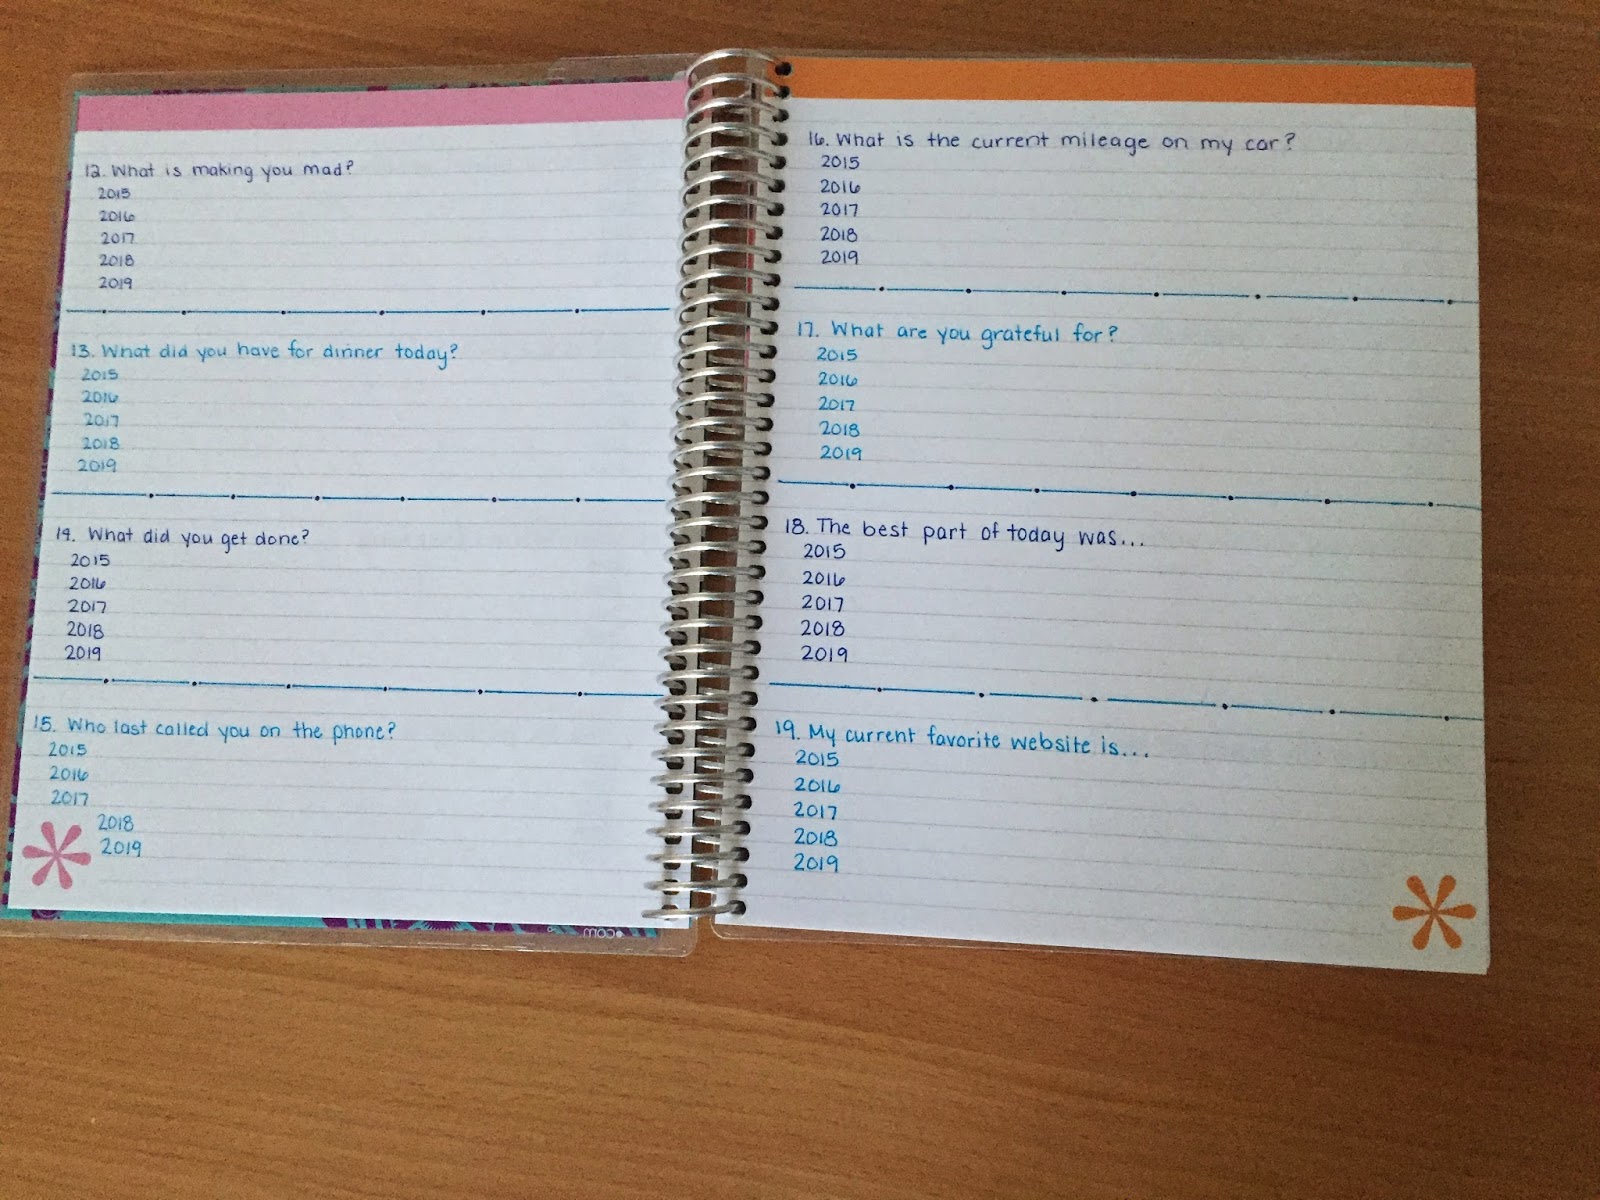 12. What is making you mad?
2015
2016
2017
2018
2019
13. What did you have for dinner today?
2015
2016
2017
2018
2019
14. What did you get done?
2015
2016
2017
2018
2019
15. Who last called you on the phone?
2015
2016
2017
2018
2019
16. What is the current mileage on my car?
2015
2016
2017
2018
2019
17. What are you grateful for?
2015
2016
2017
2018
2019
18. The best part of today was...
2015
2016
2017
2018
2019
19. My current favorite website is...
2015
2016
2017
2018
2019